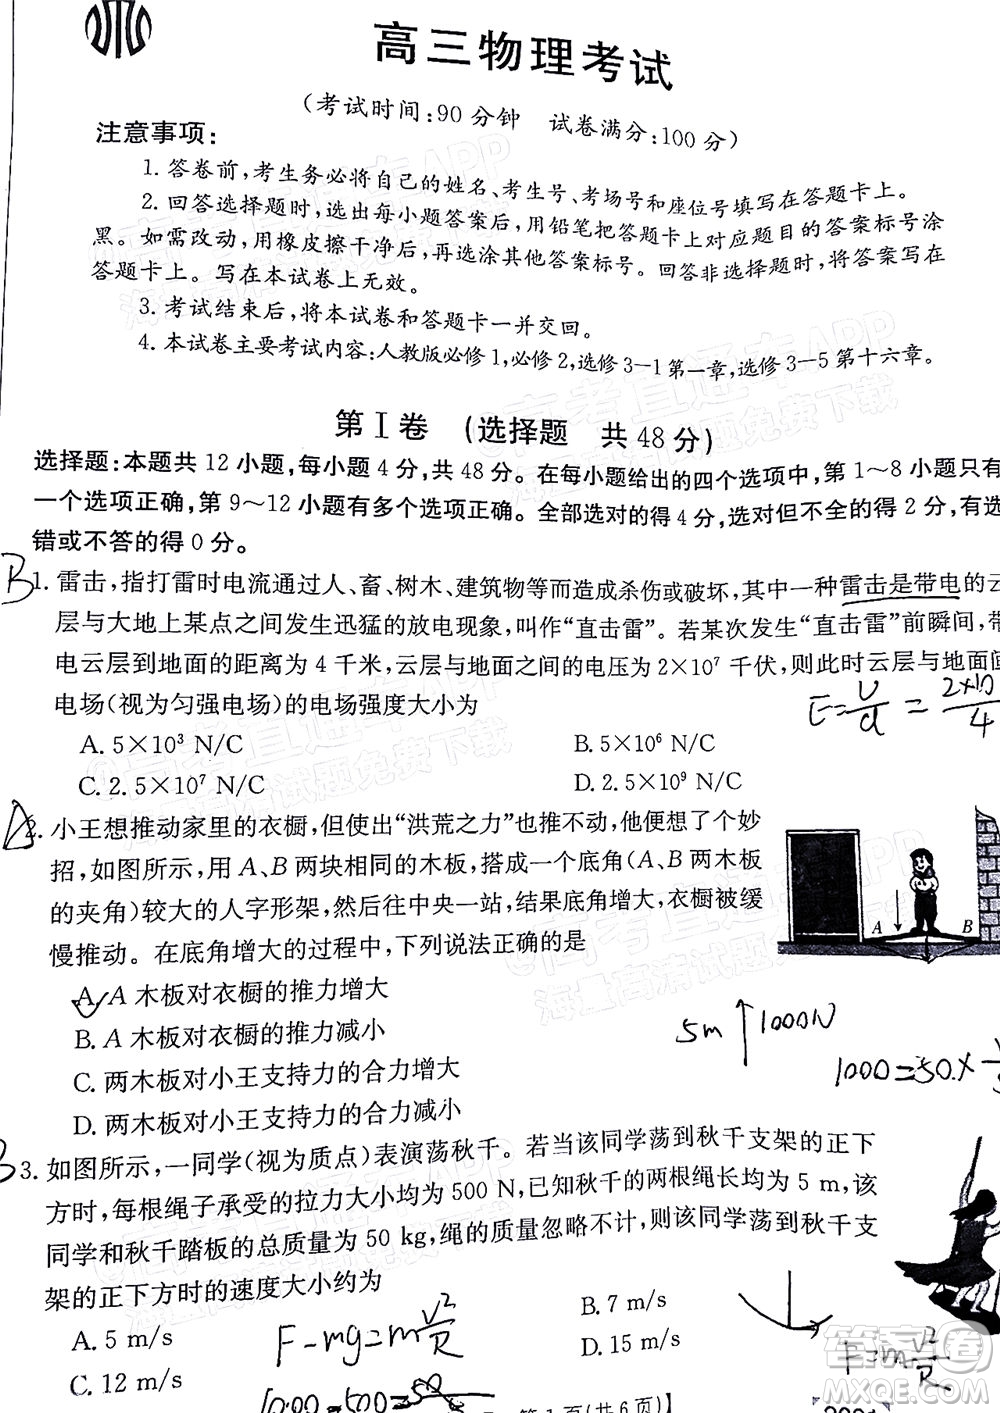 高三物理考试
(考试时间:90分钟 试卷满分:100分)
注意事项:
1. 答卷前,考生务必将自己的姓名、考生号、考场号和座位号填写在答题卡上。
2. 回答选择题时,选出每小题答案后,用铅笔把答题卡上对应题目的答案标号涂
黑。如需改动,用橡皮擦干净后,再选涂其他答案标号。回答非选择题时,将答案写在
答题卡上。写在本试卷上无效。
3. 考试结束后,将本试卷和答题卡一并交回。
4. 本试卷主要考试内容:人教版必修1,必修2,选修3-1第一章,选修3-5第十六章。
第Ⅰ卷 (选择题 共48分)
选择题:本题共12小题,每小题4分,共48分。在每小题给出的四个选项中,第1~8小题只有
一个选项正确,第9~12小题有多个选项正确。全部选对的得4分,选对但不全的得2分,有选
错或不答的得0分。
B 1. 雷击,指打雷时电流通过人、畜、树木、建筑物等而造成杀伤或破坏,其中一种雷击是带电的云
层与大地上某点之间发生迅猛的放电现象,叫作“直击雷”。若某次发生“直击雷”前瞬间,带
电云层到地面的距离为4千米,云层与地面之间的电压为2×10⁷千伏,则此时云层与地面间
电场(视为匀强电场)的电场强度大小为
E=U/d=2×10/4
A. 5×10³ N/C B. 5×10⁶ N/C
C. 2.5×10⁷ N/C D. 2.5×10⁹ N/C
2. 小王想推动家里的衣橱,但使出“洪荒之力”也推不动,他便想了个妙
招,如图所示,用A、B两块相同的木板,搭成一个底角(A、B两木板
的夹角)较大的人字形架,然后往中央一站,结果底角增大,衣橱被缓
慢推动。在底角增大的过程中,下列说法正确的是
A B
A. A木板对衣橱的推力增大
B. A木板对衣橱的推力减小
C. 两木板对小王支持力的合力增大
D. 两木板对小王支持力的合力减小
5m 1000N
1000=50×
B 3. 如图所示,一同学(视为质点)表演荡秋千。若当该同学荡到秋千支架的正下
方时,每根绳子承受的拉力大小均为500 N,已知秋千的两根绳长均为5 m,该
同学和秋千踏板的总质量为50 kg,绳的质量忽略不计,则该同学荡到秋千支
架的正下方时的速度大小约为
A. 5 m/s B. 7 m/s
C. 12 m/s D. 15 m/s
F-mg=m v²/R
F=m v²/R
1000-500=50
第1页(共6页)】
高考直通车APP
海量高清试题免费下载
答案圈